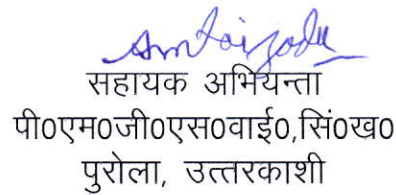 सहायक अभियन्ता
पी०एम०जी०एस०वाई०,सिं०ख०
पुरोला, उत्तरकाशी